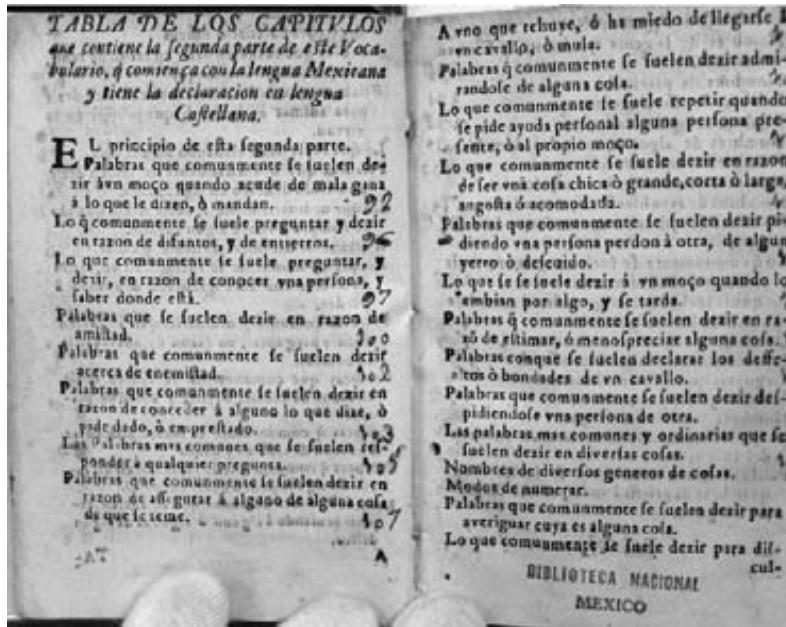 TABLA DE LOS CAPITVLOS
que contiene la segunda parte de este Voca-
bulario, q̃ comiença con la lengua Mexicana
y tiene la declaracion en lengua
Castellana.
EL principio de esta segunda parte.
Palabras que comunmente se suelen de-
zir à vn moço quando acude de mala gana
à lo que le dizen, ò mandan. 92
Lo q̃ comunmente se suele preguntar y dezir
en razon de difuntos, y de entierros.
Lo que comunmente se suele preguntar, y
dezir, en razon de conocer vna persona, y
saber donde està. 97
Palabras que se suelen dezir en razon de
amistad. 100
Palabras que comunmente se suelen dezir
acerca de enemistad. 102
Palabras que comunmente se suelen dezir en
razon de conceder à alguno lo que dize, ò
pide dado, ò emprestado. 103
Las Palabras mas comunes que se suelen res-
ponder à qualquier pregunta. 105
Palabras que comunmente se suelen dezir en
razon de assegurar à alguno de alguna cosa
de que se teme. 107
A
A vno que rehuye, ò ha miedo de llegarse à
vn cavallo, ò mula.
Palabras q̃ comunmente se suelen dezir admi-
randose de alguna cosa.
Lo que comunmente se suele repetir quando
se pide ayuda personal alguna persona pre-
sente, ò al propio moço.
Lo que comunmente se suele dezir en razon
de ser vna cosa chica ò grande, corta ò larga,
angosta ò acomodada.
Palabras que comunmente se suelen dezir pi-
diendo vna persona perdon à otra, de algun
yerro ò descuido.
Lo que se se suele dezir à vn moço quando lo
embian por algo, y se tarda.
Palabras q̃ comunmente se suelen dezir en ra-
zõ de estimar, ò menospreciar alguna cosa.
Palabras conque se suelen declarar los deffe-
ctos ò bondades de vn cavallo.
Palabras que comunmente se suelen dezir des-
pidiendose vna persona de otra.
Las palabras mas comunes y ordinarias que se
suelen dezir en diversas cosas.
Nombres de diversos generos de cosas.
Modos de numerar.
Palabras que comunmente se suelen dezir para
averiguar cuya es alguna cosa.
Lo que comunmente se suele dezir para dis-
cul-
BIBLIOTECA NACIONAL
MEXICO